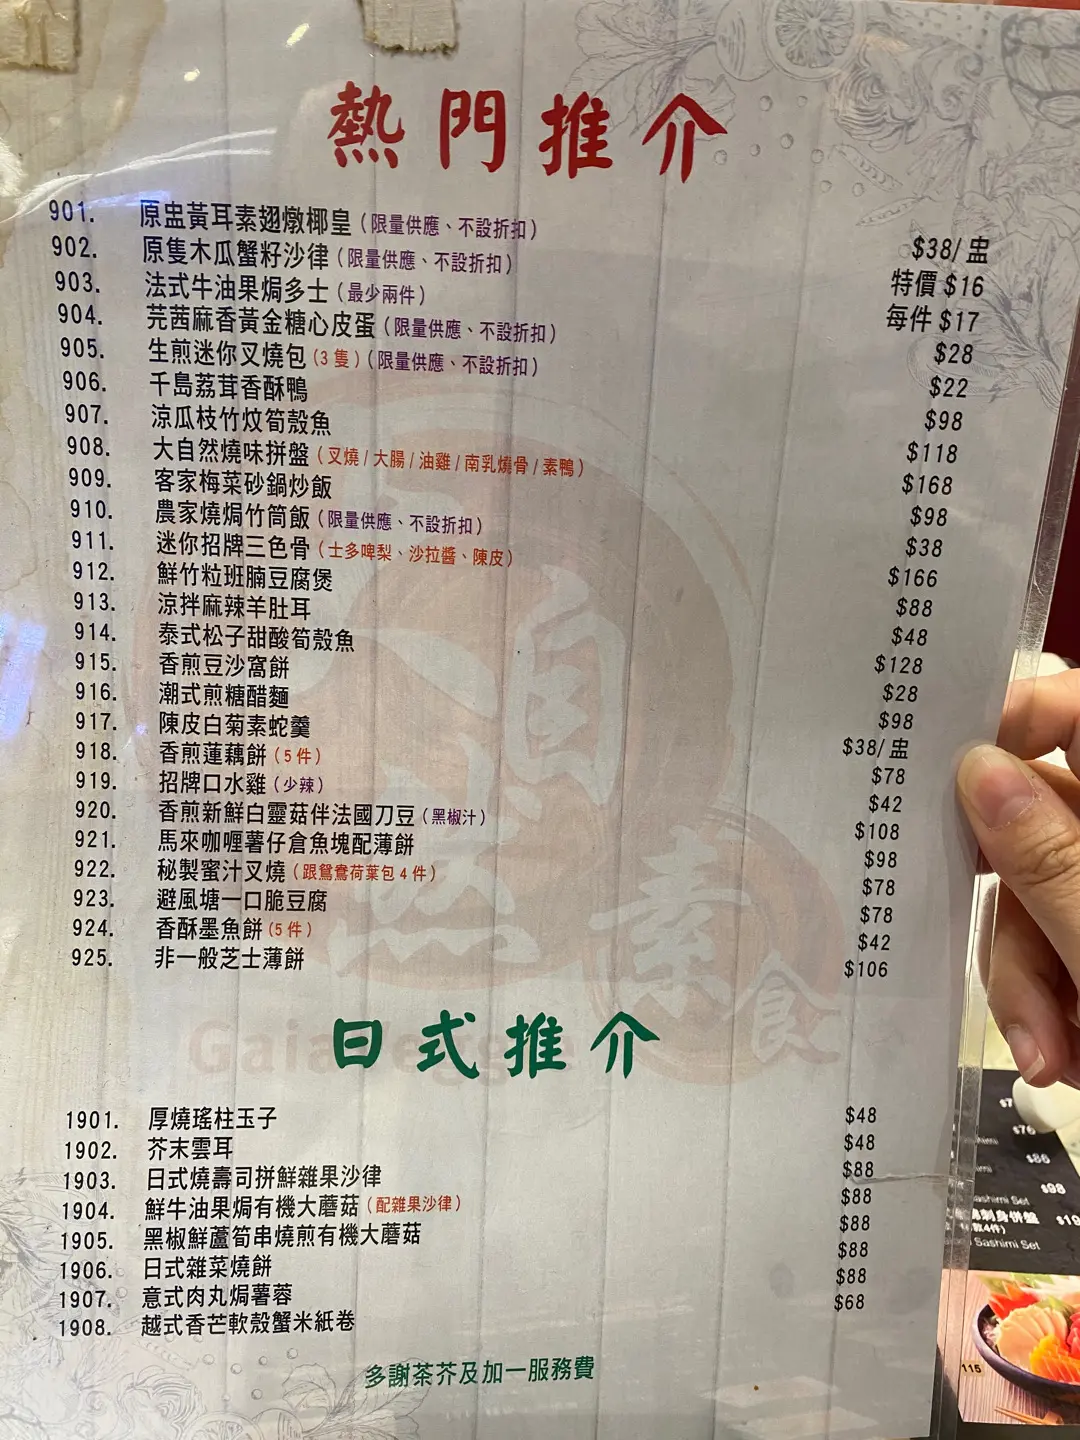 熱門推介
901. 原盅黃耳素翅燉椰皇(限量供應、不設折扣) $38/盅
902. 原隻木瓜蟹籽沙律(限量供應、不設折扣) 特價 $16
903. 法式牛油果焗多士(最少兩件) 每件 $17
904. 芫茜麻香黃金糖心皮蛋(限量供應、不設折扣) $28
905. 生煎迷你叉燒包(3隻)(限量供應、不設折扣) $22
906. 千島荔茸香酥鴨 $98
907. 涼瓜枝竹炆筍殼魚 $118
908. 大自然燒味拼盤(叉燒/大腸/油雞/南乳燒骨/素鴨) $168
909. 客家梅菜砂鍋炒飯 $98
910. 農家燒焗竹筒飯(限量供應、不設折扣) $38
911. 迷你招牌三色骨(士多啤梨、沙拉醬、陳皮) $166
912. 鮮竹粒班腩豆腐煲 $88
913. 涼拌麻辣羊肚耳 $48
914. 泰式松子甜酸筍殼魚 $128
915. 香煎豆沙窩餅 $28
916. 潮式煎糖醋麵 $98
917. 陳皮白菊素蛇羹 $38/盅
918. 香煎蓮藕餅(5件) $78
919. 招牌口水雞(少辣) $42
920. 香煎新鮮白靈菇伴法國刀豆(黑椒汁) $108
921. 馬來咖喱薯仔倉魚塊配薄餅 $98
922. 秘製蜜汁叉燒(跟鴛鴦荷葉包4件) $78
923. 避風塘一口脆豆腐 $78
924. 香酥墨魚餅(5件) $42
925. 非一般芝士薄餅 $106
日式推介
1901. 厚燒瑤柱玉子 $48
1902. 芥末雲耳 $48
1903. 日式燒壽司拼鮮雜果沙律 $88
1904. 鮮牛油果焗有機大蘑菇(配雜果沙律) $88
1905. 黑椒鮮蘆筍串燒煎有機大蘑菇 $88
1906. 日式雜菜燒餅 $88
1907. 意式肉丸焗薯蓉 $88
1908. 越式香芒軟殼蟹米紙卷 $68
多謝茶芥及加一服務費
$76
$86
$98
ashimi Set
刺身併盤
Sashimi Set
115